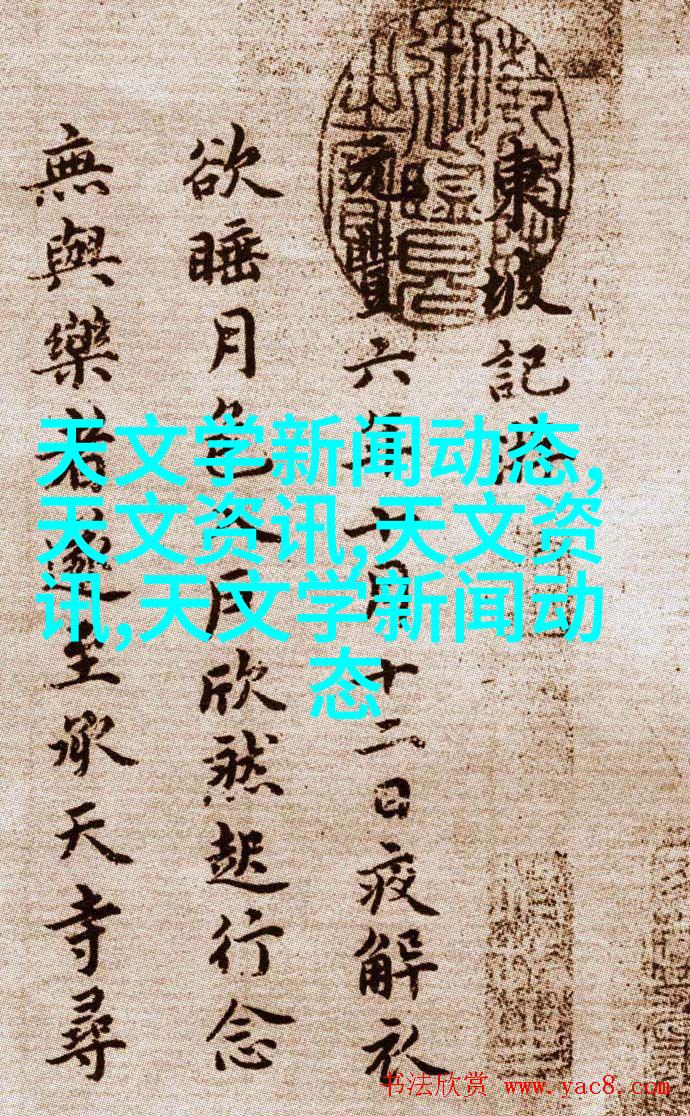 東坡記
元豐六年十月十二日夜解衣
欲睡月色入戶欣然起行念
無與樂者遂至承天寺尋
天文学新闻动态,
天文资讯,天文资
讯,天文学新闻动
态
书法欣赏 www.yac8.com